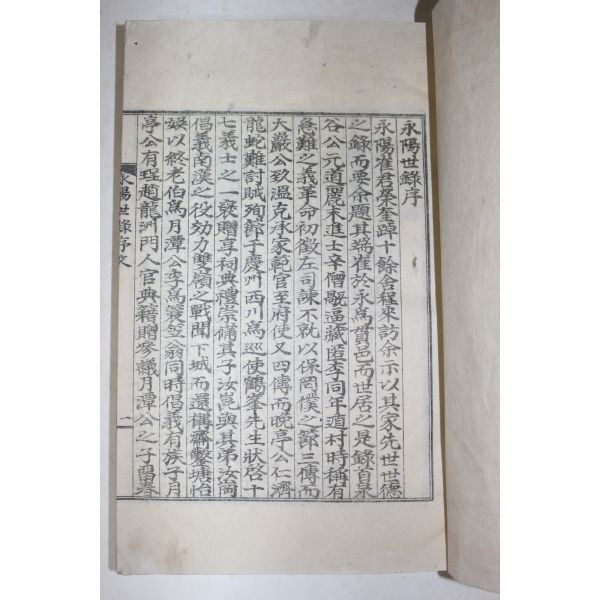 永陽世錄序
永陽崔君榮奎踔十餘舍程來訪余示以其家先世世德
之錄而要余題其端崔於永爲貫邑而世居之是錄首
谷公元道麗末進士辛僧毒逼藏匿李同年遁村時稱有
急難之義革命初徵左司諫不就以保罔僕之節三傳而
大嚴公致溫克承家範官至府使又四傳而晩亭公仁濟
龍蛇難討賊殉節于慶州西川爲巡使鶴峯先生狀啓十
七義士之一褒贈享祠典禮崇備其子汝崑與其弟汝崗
倡義南漢之役効力雙嶺之戰聞下城而還構齋鑿塘怡
娛以終老伯爲月潭公季爲簑笠翁同時倡義有族子月
亭公有理趙龍洲門人官典籍贈參議月潭公之子
永陽世錄序文
一